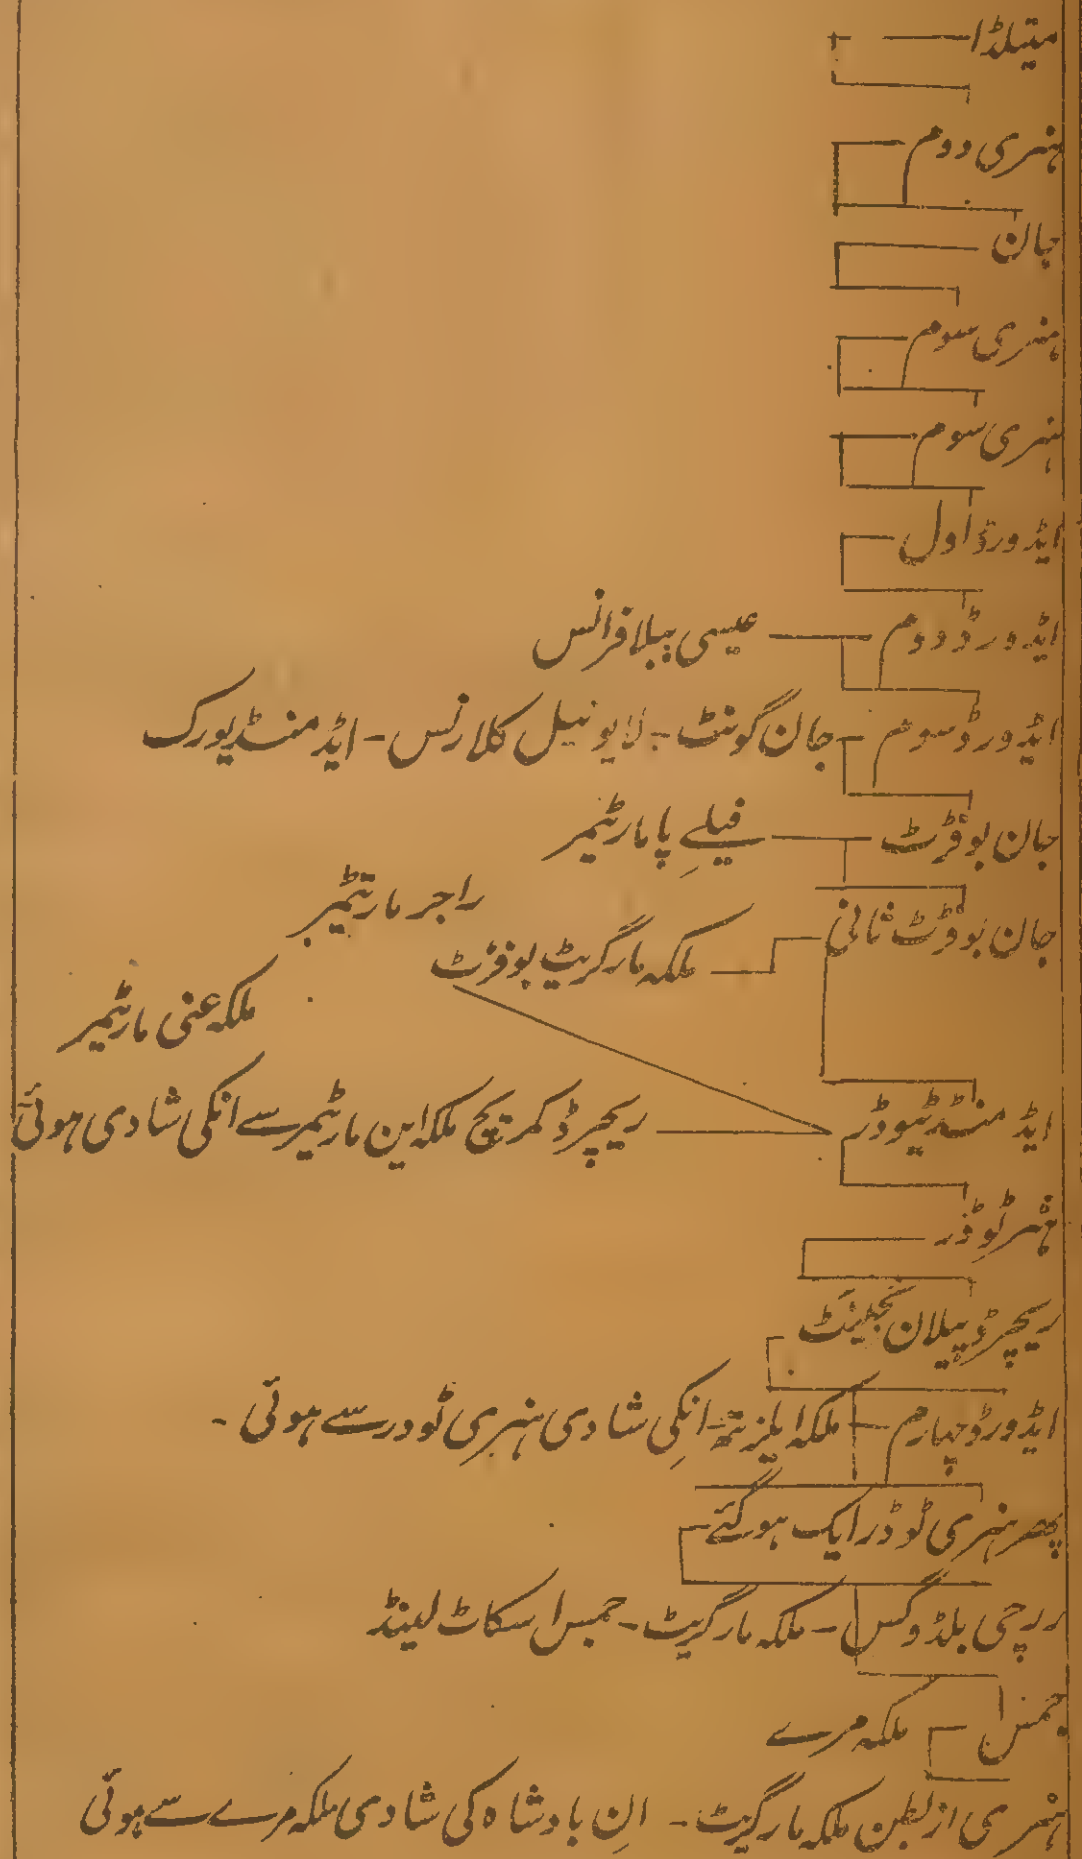 متیلڈا
ہنری دوم
جان
ہنری سوم
ہنری سوم
ایڈورڈ اول
ایڈورڈ دوم عیسی پیلا فرانس
ایڈورڈ سوم - جان گونٹ - لایونیل کلارنس - ایڈمنڈ یورک
جان بوفرٹ فیلے پا مارٹیمر
راجر مارٹیمر
جان بوفرٹ ثانی ملکہ مارگریٹ بوفرٹ
ملکہ عنی مارٹیمر
ایڈمنڈ ٹیوڈر ریچرڈ کمریج ملکہ این مارٹیمر سے انکی شادی ہوئی
ٹوڈر
ریچرڈ پیلان نجٹینٹ
ایڈورڈ چہارم - ملکہ ایلزبتھ - انکی شادی ہنری ٹودر سے ہوئی -
پھر ہنری ٹوڈر ایک ہو گئے
بلڈ وگس - ملکہ مارگریٹ - جمس اسکاٹ لینڈ
جمس - ملکہ مرے
ہنری از بطن ملکہ مارگریٹ - ان بادشاہ کی شادی ملکہ مرے سے ہوئی